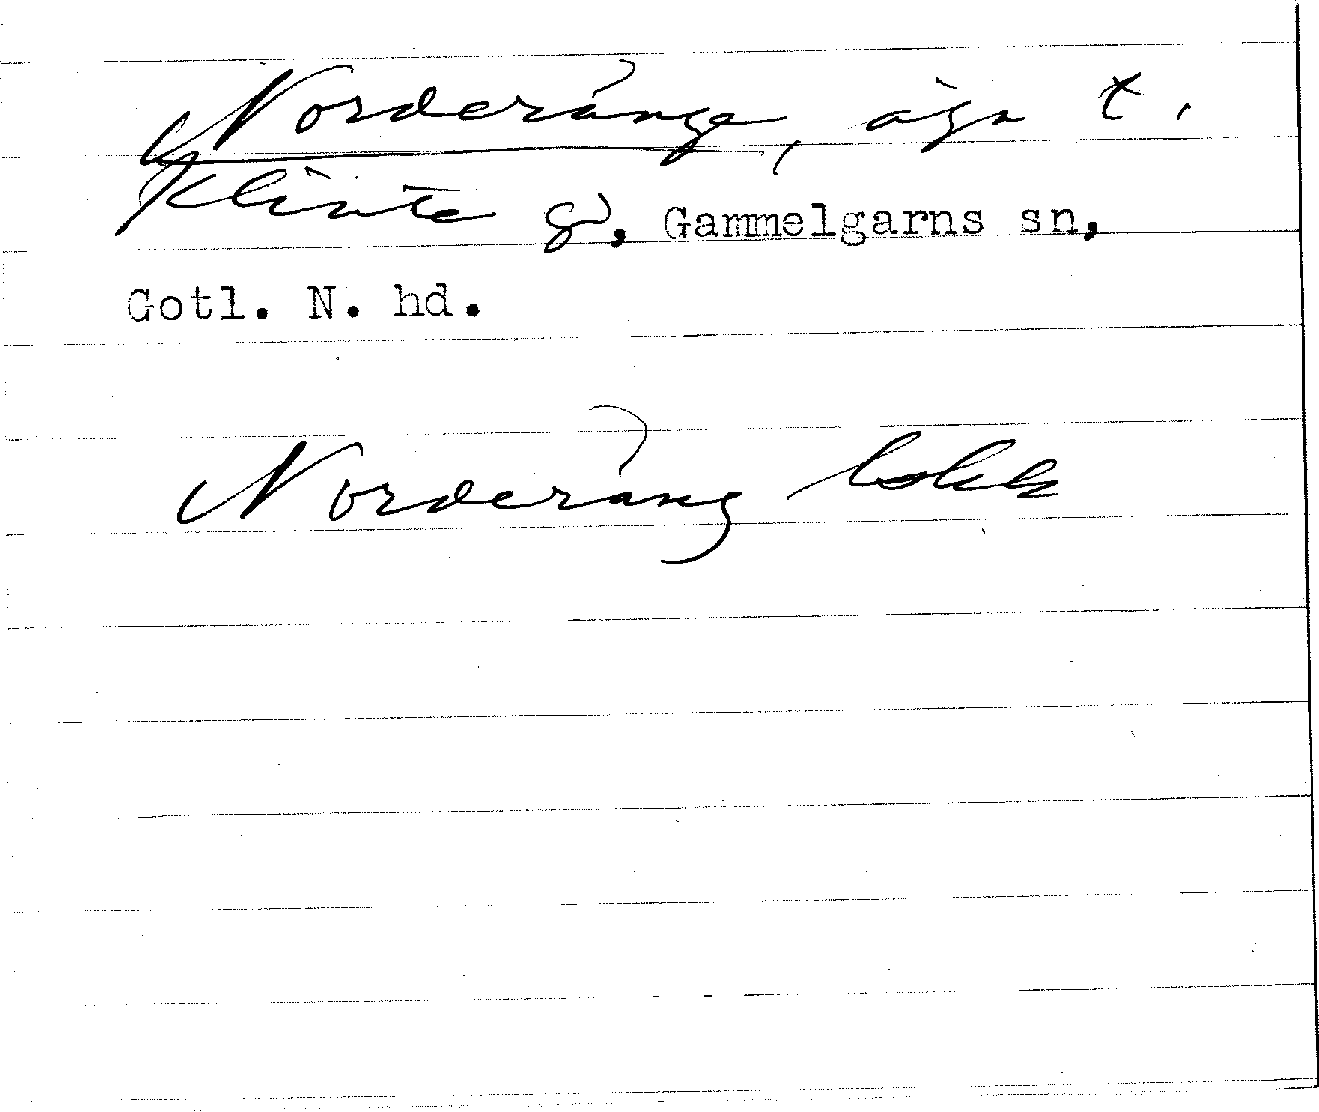 Norderänge, äga t.
Klinte g, Gammelgarns sn,
Gotl. N. hd.
Norderäng